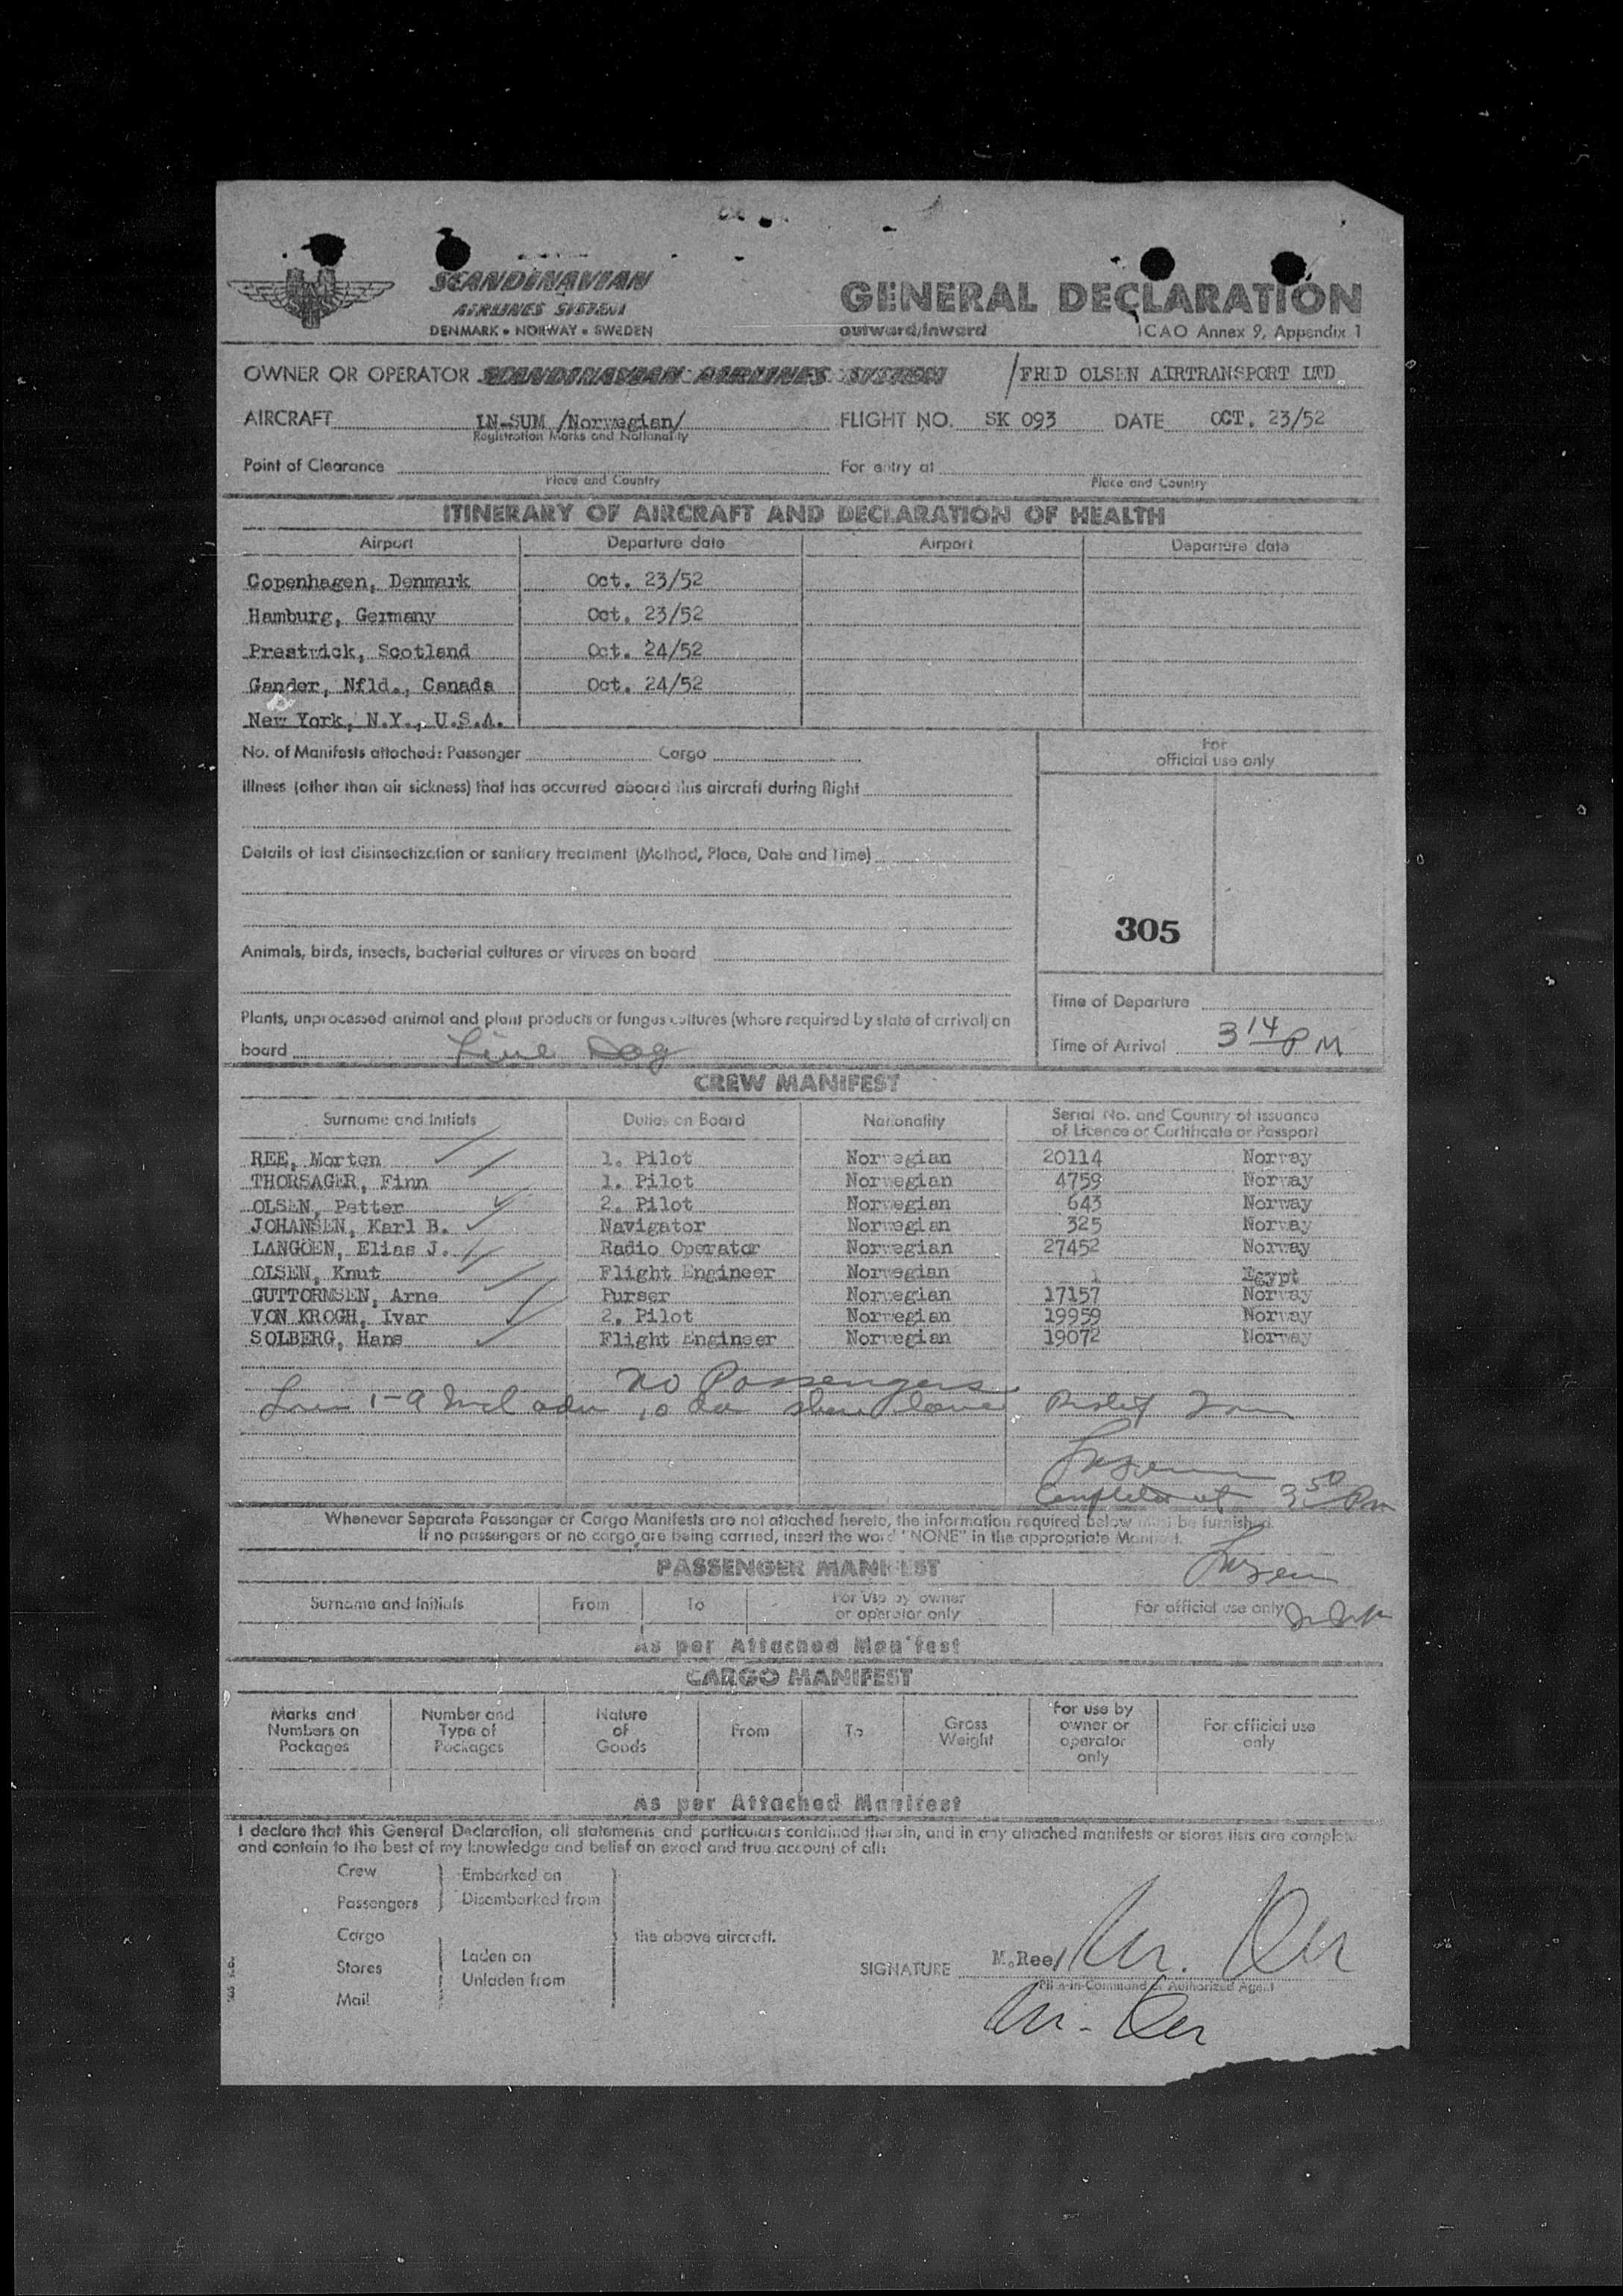 SCANDINAVIAN
AIRLINES SYSTEM
DENMARK • NORWAY • SWEDEN
GENERAL DECLARATION
outward/inward
ICAO Annex 9, Appendix 1
OWNER OR OPERATOR SCANDINAVIAN AIRLINES SYSTEM /FRED OLSEN AIRTRANSPORT LTD
AIRCRAFT LN-SUM /Norwegian/ FLIGHT NO. SK 093 DATE OCT. 23/52
Registration Marks and Nationality
Point of Clearance For entry at
Place and Country Place and Country
ITINERARY OF AIRCRAFT AND DECLARATION OF HEALTH
Airport Departure date Airport Departure date
Copenhagen, Denmark Oct. 23/52
Hamburg, Germany Oct. 23/52
Prestwick, Scotland Oct. 24/52
Gander, Nfld., Canada Oct. 24/52
New York, N.Y., U.S.A.
No. of Manifests attached: Passenger Cargo
For
official use only
Illness (other than air sickness) that has occurred aboard this aircraft during flight
Details of last disinsectization or sanitary treatment (Method, Place, Date and Time)
305
Animals, birds, insects, bacterial cultures or viruses on board
Time of Departure
Plants, unprocessed animal and plant products or fungus cultures (where required by state of arrival) on
board Live Dog
Time of Arrival 3 14 PM
CREW MANIFEST
Surname and Initials Duties on Board Nationality Serial No. and Country of issuance
of Licence or Certificate or Passport
REE, Morten 1. Pilot Norwegian 20114 Norway
THORSAGER, Finn 1. Pilot Norwegian 4759 Norway
OLSEN, Petter 2. Pilot Norwegian 643 Norway
JOHANSEN, Karl B. Navigator Norwegian 325 Norway
LANGÖEN, Elias J. Radio Operator Norwegian 27452 Norway
OLSEN, Knut Flight Engineer Norwegian 1 Egypt
GUTTORMSEN, Arne Purser Norwegian 17157 Norway
VON KROGH, Ivar 2. Pilot Norwegian 19959 Norway
SOLBERG, Hans Flight Engineer Norwegian 19072 Norway
No Passengers
1-9 Incl
Completed at 3 50 Pm
Whenever Separate Passenger or Cargo Manifests are not attached hereto, the information required below must be furnished.
If no passengers or no cargo are being carried, insert the word "NONE" in the appropriate Manifest.
PASSENGER MANIFEST
Surname and Initials From To For use by owner
or operator only
For official use only
As per Attached Manifest
CARGO MANIFEST
Marks and
Numbers on
Packages
Number and
Type of
Packages
Nature
of
Goods
From
To
Gross
Weight
For use by
owner or
operator
only
For official use
only
As per Attached Manifest
I declare that this General Declaration, all statements and particulars contained therein, and in any attached manifests or stores lists are complete
and contain to the best of my knowledge and belief an exact and true account of all:
Crew
Passengers
Embarked on
Disembarked from
Cargo
Stores
Mail
Laden on
Unladen from
the above aircraft.
SIGNATURE M.Ree/ M. Ree
Pilot-in-Command or Authorized Agent
M. Ree